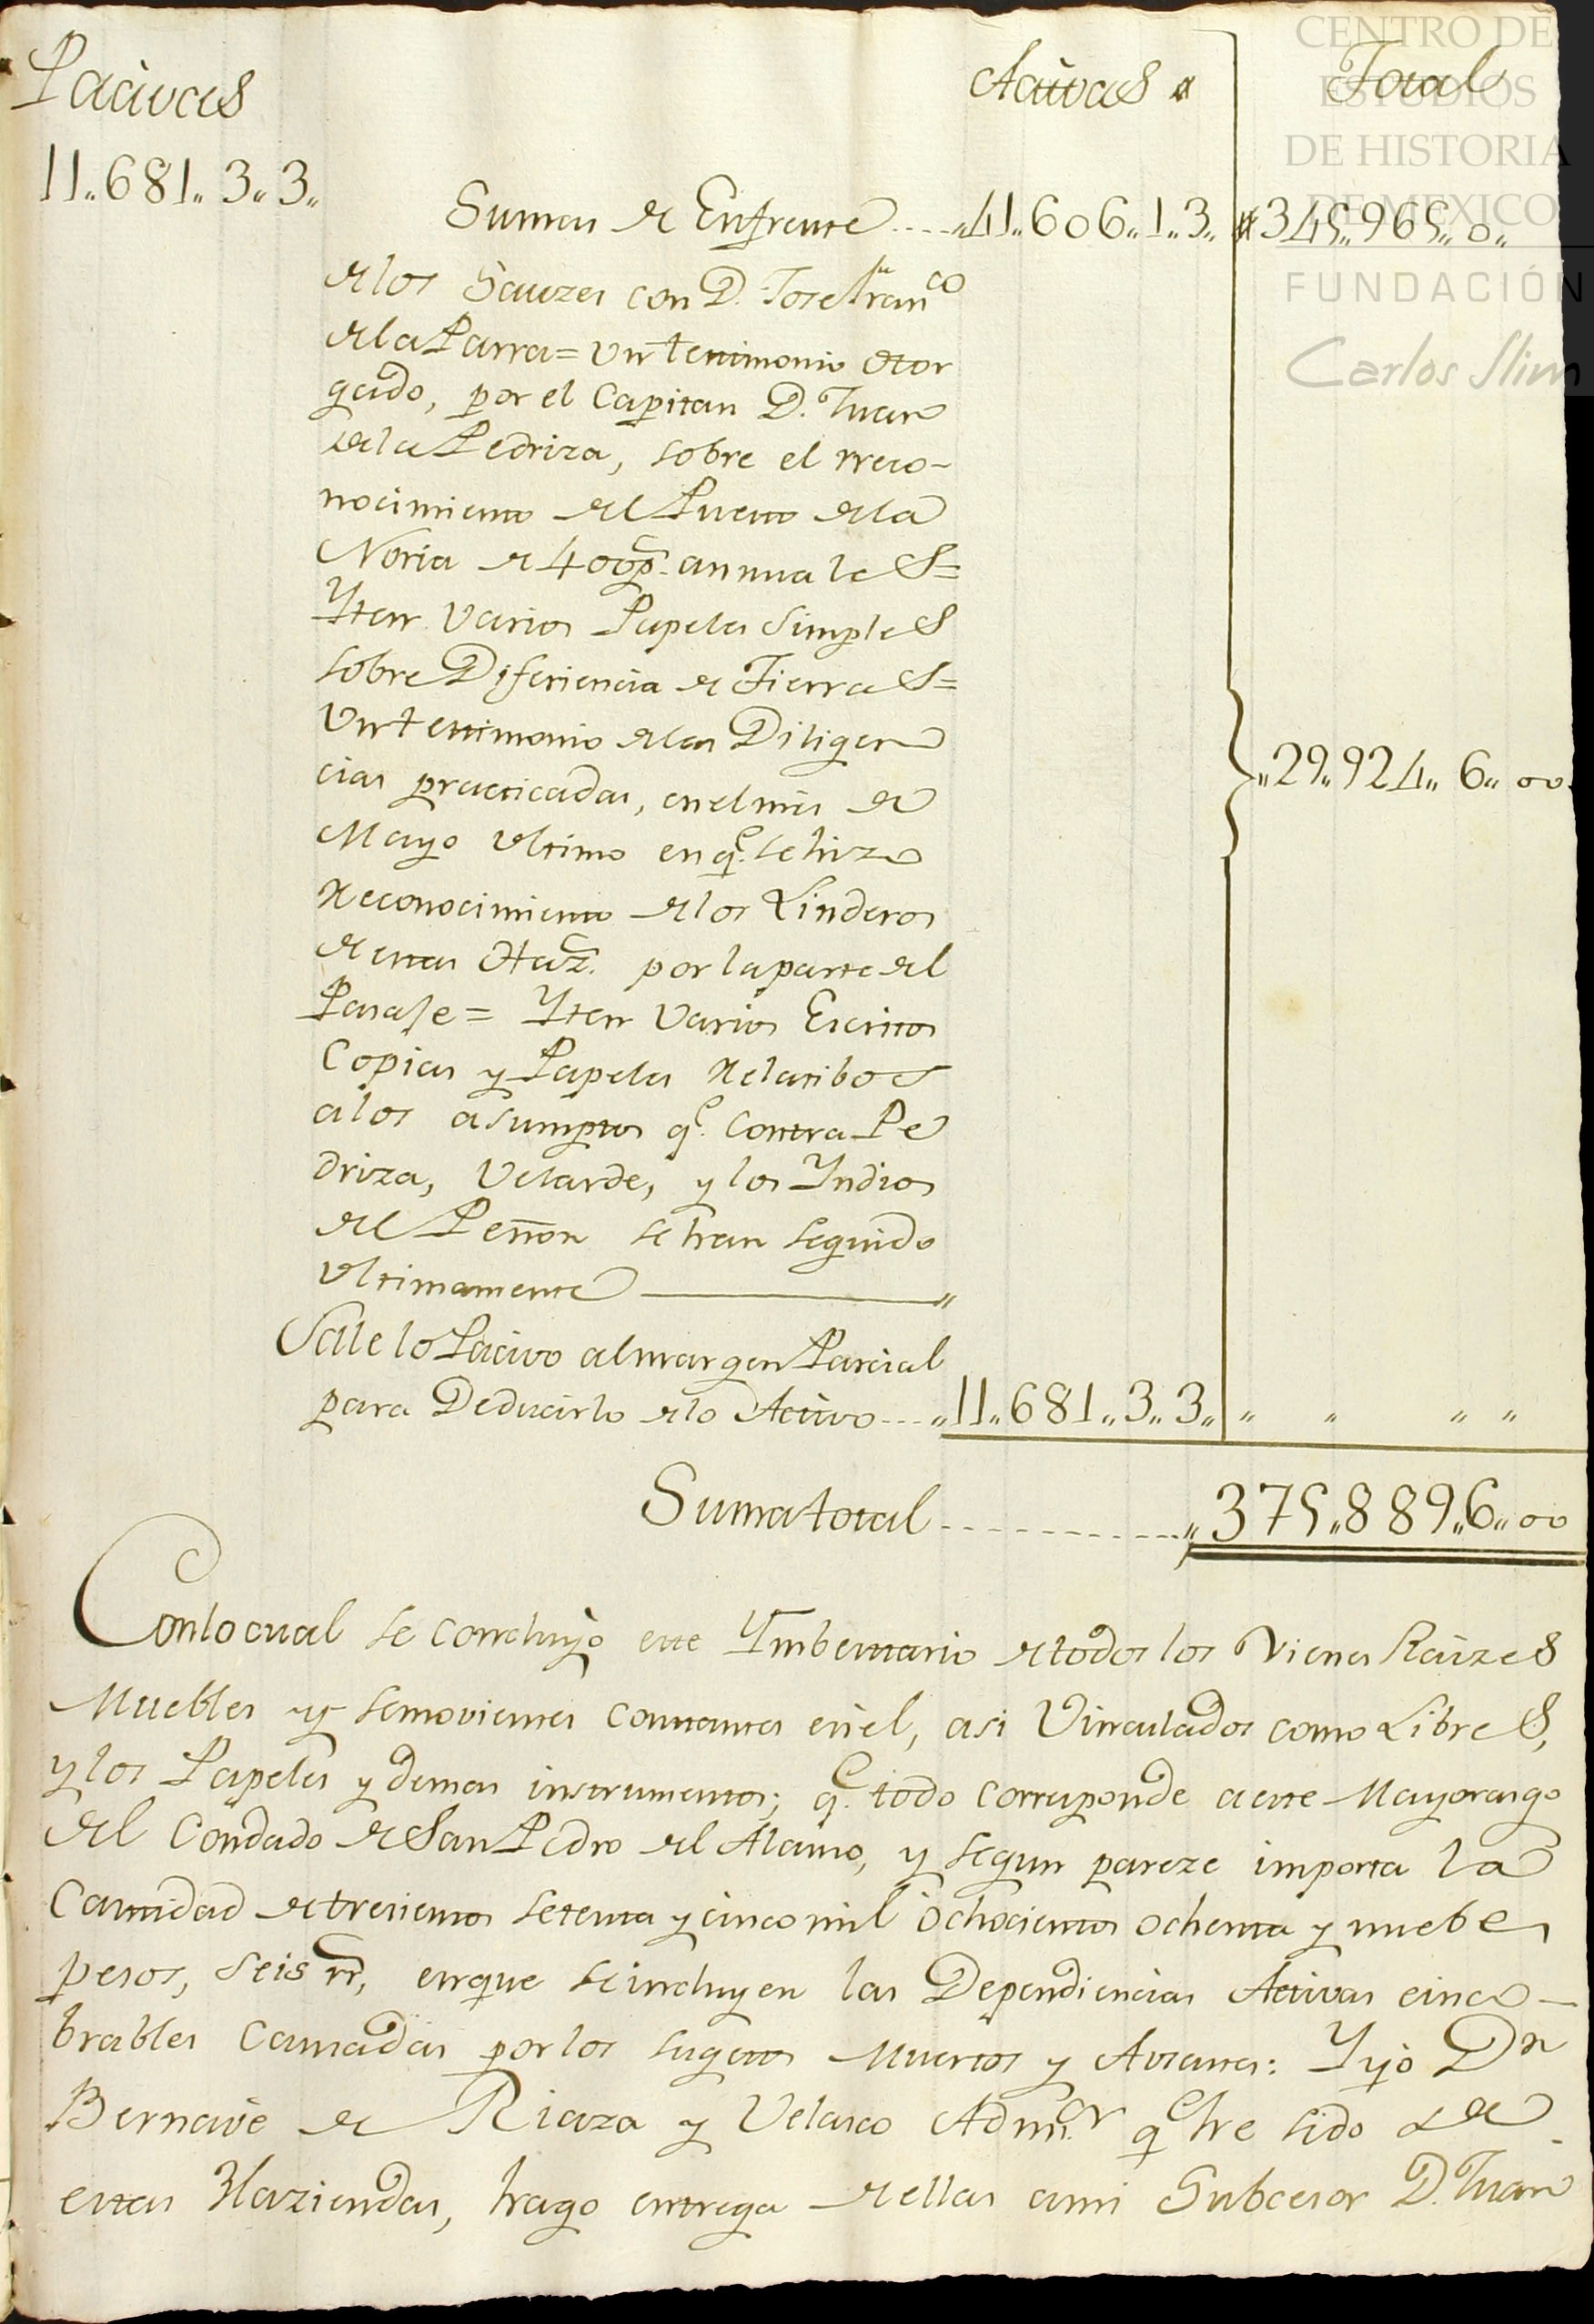 Pacivas
Activas
Total
CENTRO DE
ESTUDIOS
DE HISTORIA
DE MEXICO
FUNDACIÓN
Carlos Slim
11,,681,,3,,3,,
Sumas de Enfrente....,,41,,606,,1,,3,, 345,,965,,0,,
de los Sauzes con D. Jose Franco
de la Parra = Un testimonio otor
gado, por el Capitan D. Juan
de la Pedriza, sobre el rreco-
nocimiento del Puesto de la
Noria de 400ps. annuales =
Yten Varios Papeles Simples
sobre Diferiencia de Tierras =
Un testimonio de las Diligen
cias practicadas, en el mes de
Mayo Ultimo en qe. se hizo
Reconocimiento de los Linderos
de estas Hazs. por la parte del
Pasaje = Yten Varios Escritos
Copias y Papeles Relatibos
a los asumptos qe. contra Pe
driza, Velarde, y los Yndios
del Peñon se han seguido
Ultimamente
,,29,,924,,6,,00
Sale lo Pacivo al margen Parcial
para Deducirlo de lo Activo....,,11,,681,,3,,3,, ,, ,, ,, ,,
Suma total..........,,375,,889,,6,,00
Con lo cual se concluyó este Ymbentario de todos los Vienes Raizes
Muebles y semovientes constantes en él, asi Vinculados como Libres,
y los Papeles y demas instrumentos; qe. todo corresponde a este Mayorasgo
del Condado de San Pedro del Alamo, y segun pareze importa la
Cantidad de trescientos setenta y cinco mil ochocientos ochenta y nuebe
pesos, seis rr, en que se incluyen las Dependiencias Activas e inco-
brables causadas por los sugetos Muertos y Ausentes: Y yo Dn
Bernavé de Riaza y Velasco Admor. qe he sido de
estas Haziendas, hago entrega de ellas a mi Subcesor D. Juan